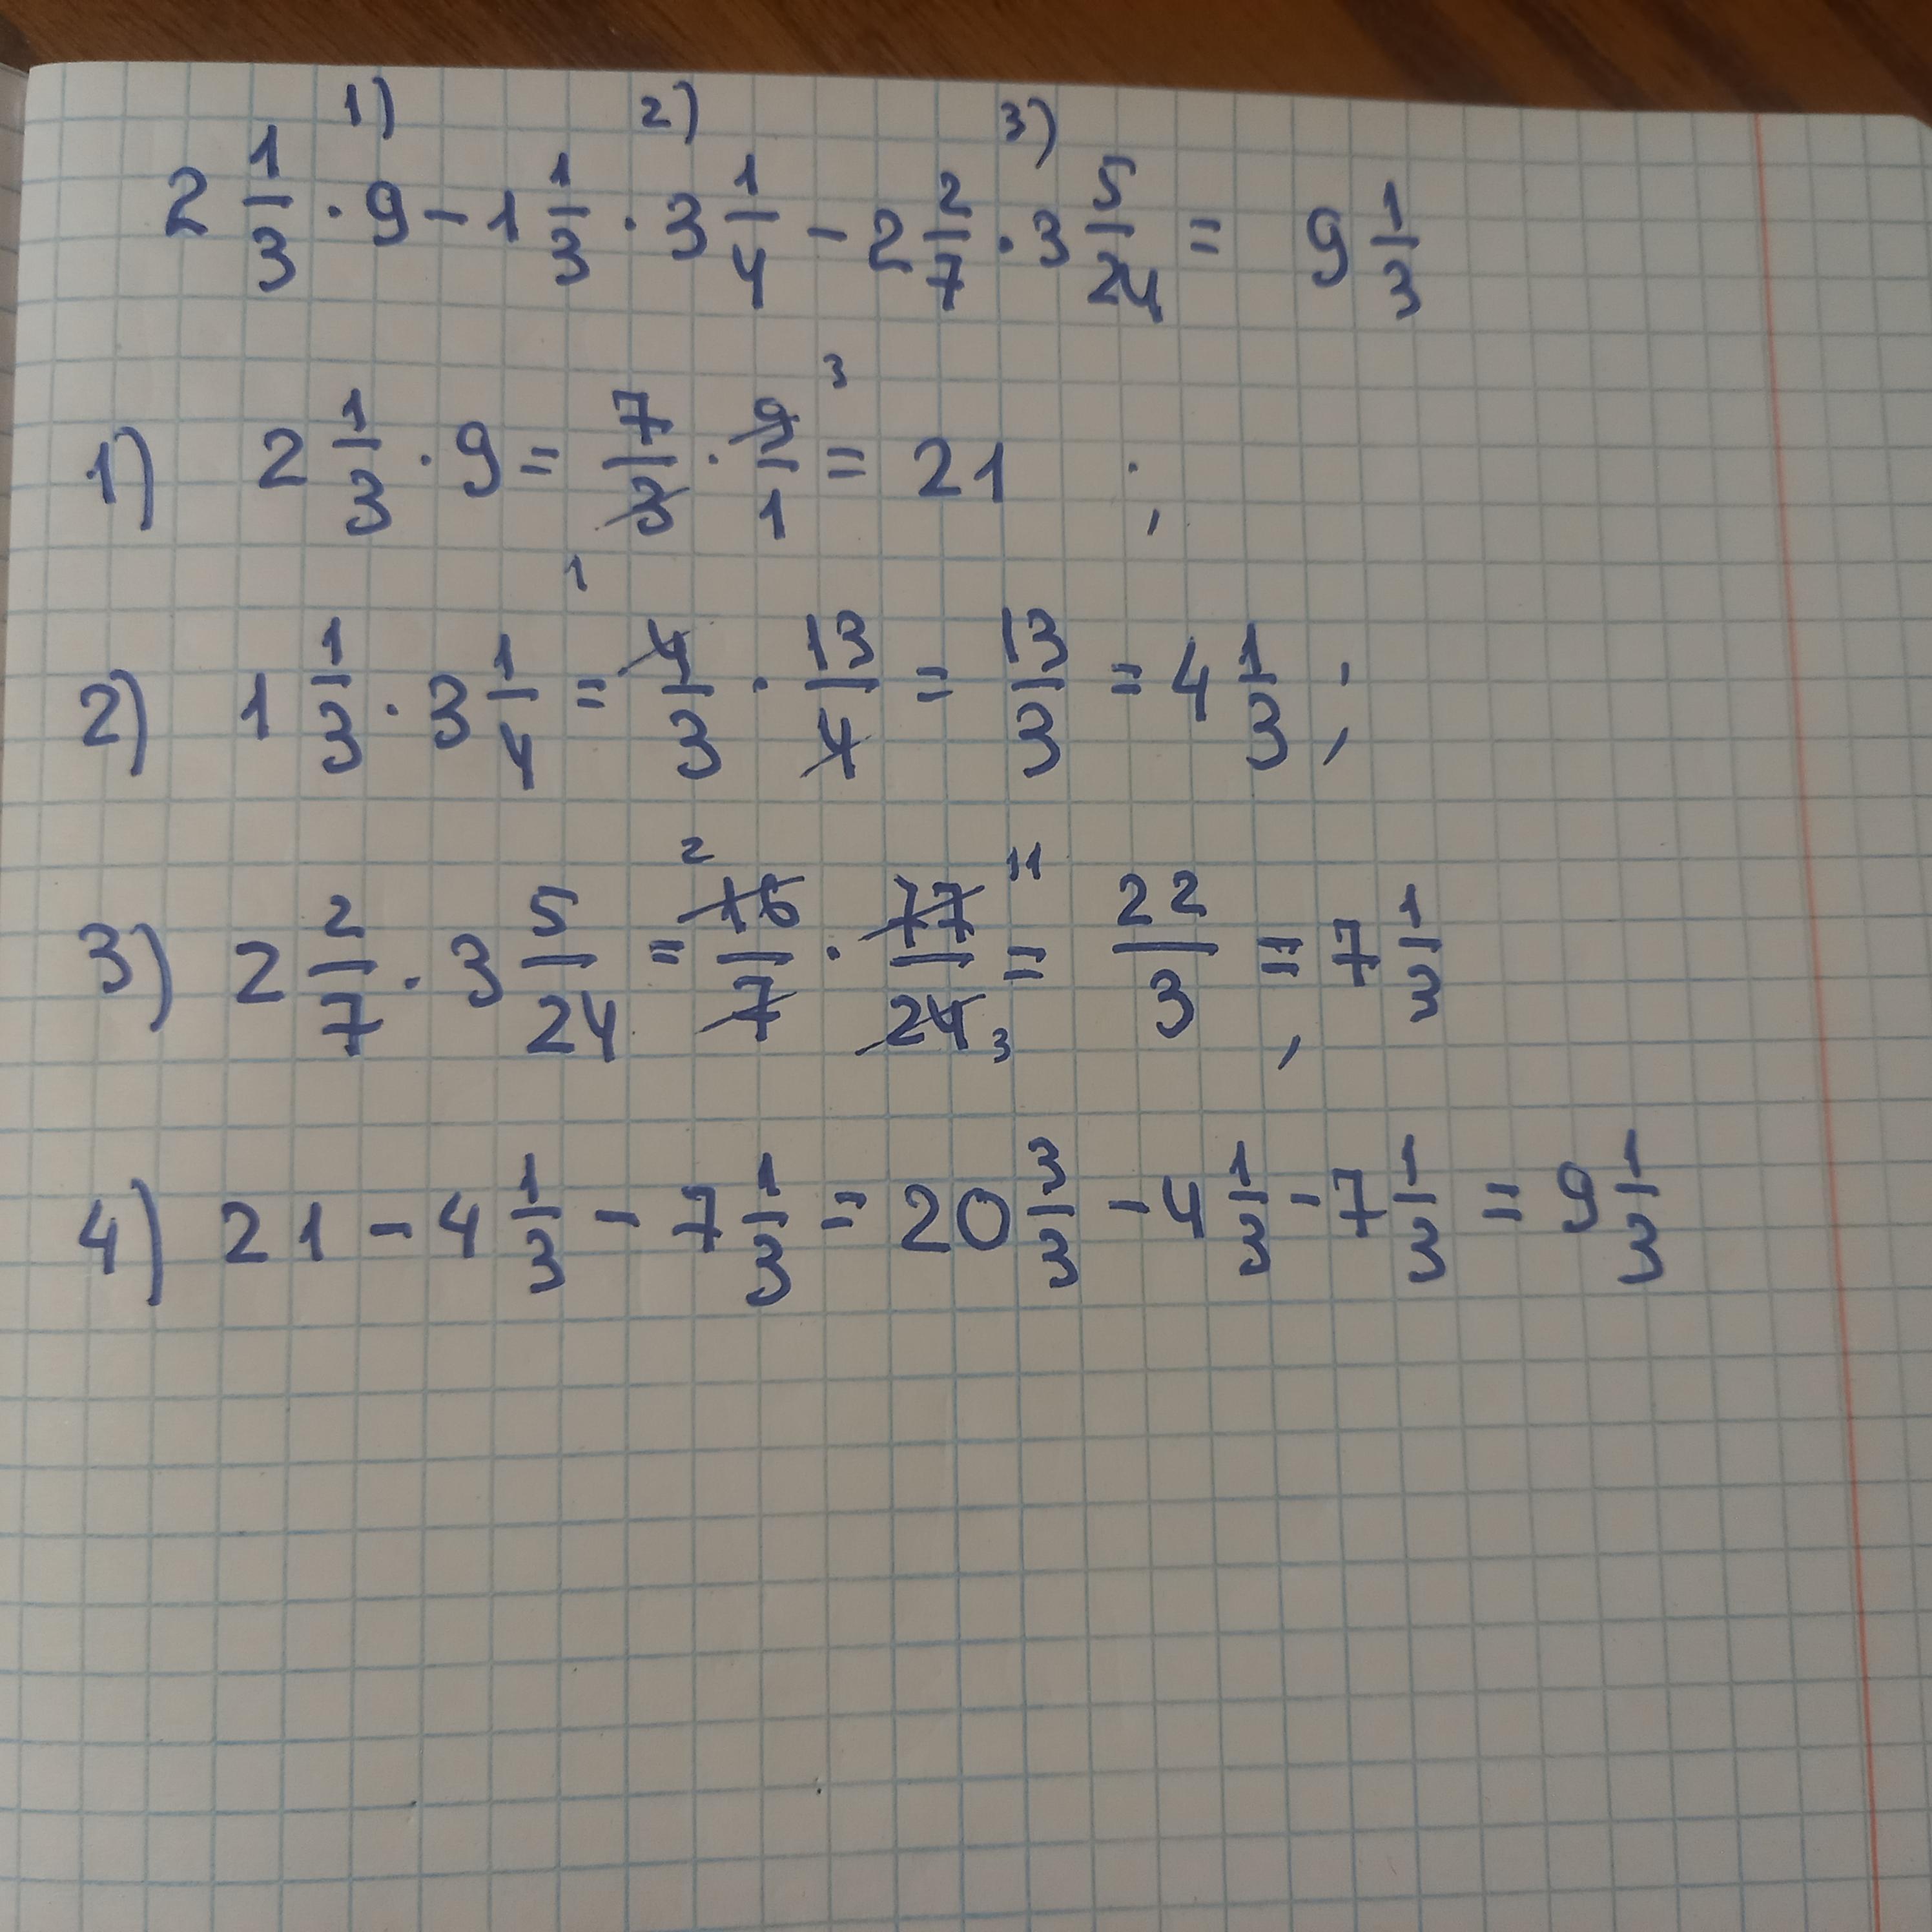 1) 2) 3)
2 1/3 · 9 - 1 1/3 · 3 1/4 - 2 2/7 · 3 5/24 = 9 1/3
1) 2 1/3 · 9 = 7/3 · 9/1 3 = 21 ;
2) 1 1/3 · 3 1/4 = 1 4/3 · 13/4 = 13/3 = 4 1/3 ;
3) 2 2/7 · 3 5/24 = 2 16/7 · 77/24 11 3 = 22/3 = 7 1/3
4) 21 - 4 1/3 - 7 1/3 = 20 3/3 - 4 1/3 - 7 1/3 = 9 1/3